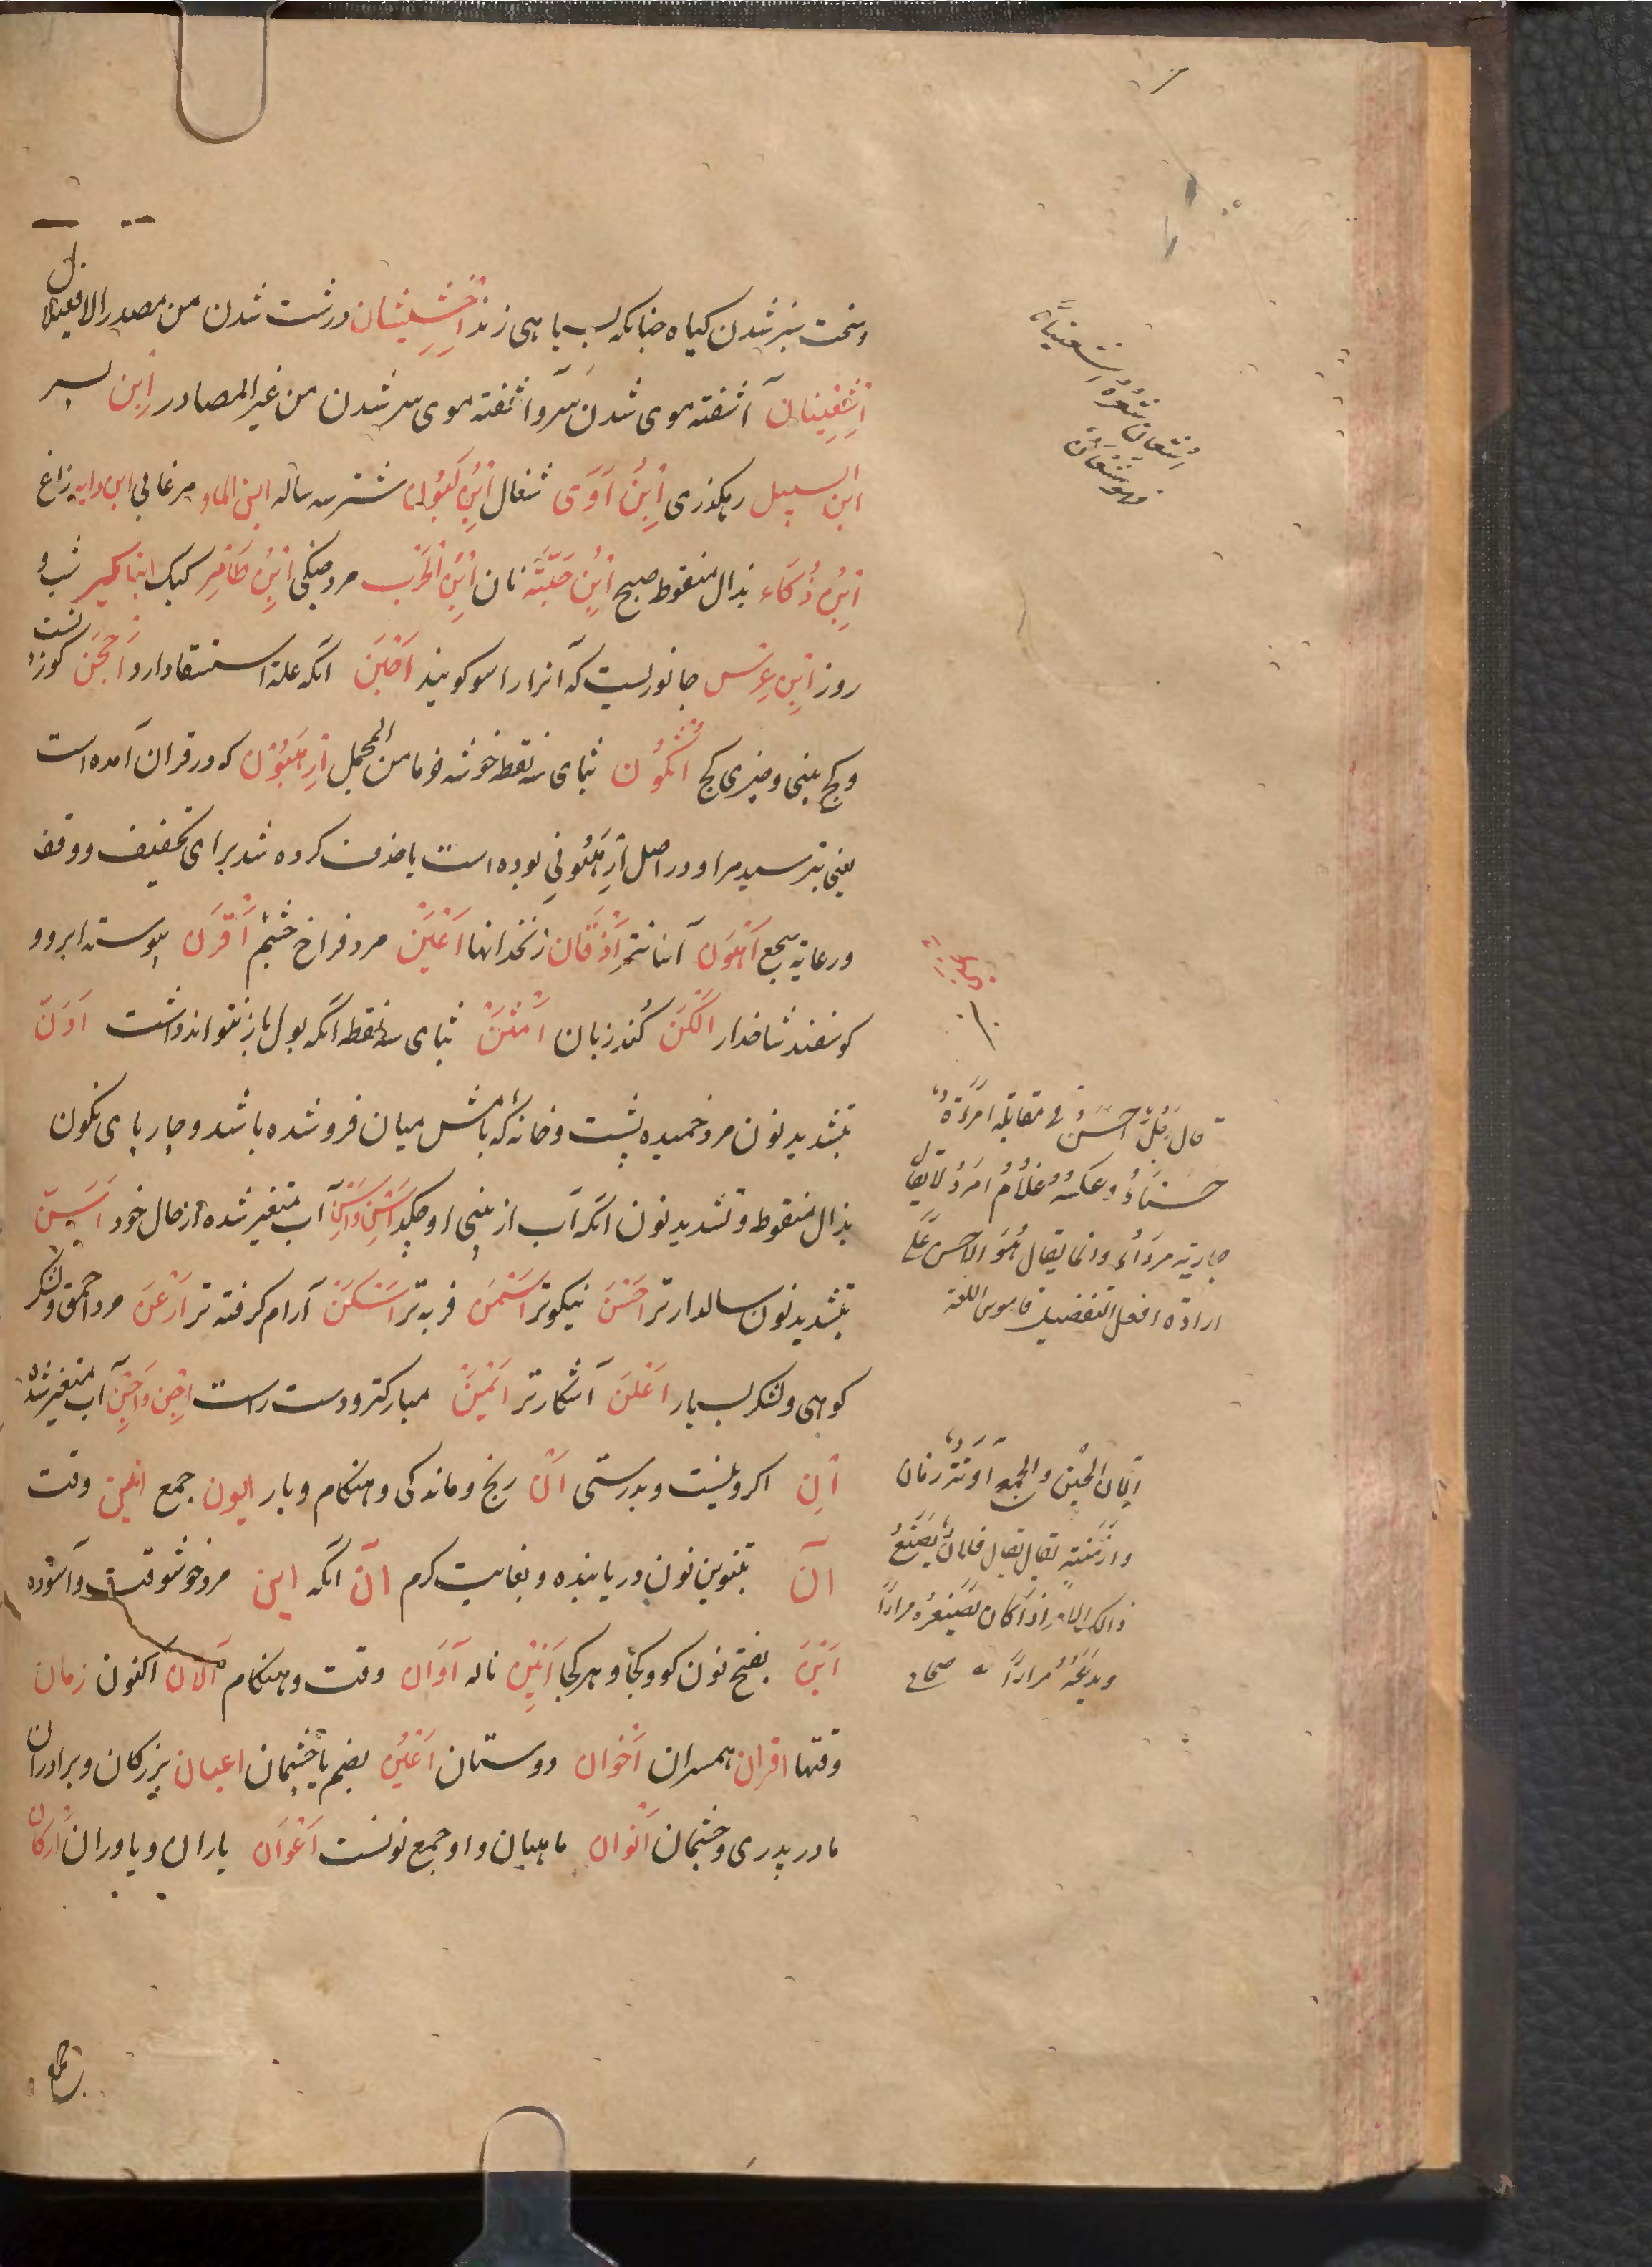 وسخت سبز شدن کیاه چنانکه بسیاهی زند اِخْشِیشَان درشت شدن من مصدر الافعیلال
اِشْعِینَان آشفته موی شدن سر و آشفته موی سر شدن من غیر المصادر اِبن پسر
ابن السبیل رهکذری اِبْنُ آوَی شغال اِبْنُ لَبُون شتر سه ساله ابن الماء مرغابی ابن دایه زاغ
اِبْنُ ذُکَاء بذال منقوط صبح اِبْنُ حَبَّة نان اِبْنُ الْحَرْب مرد جنکی اِبْنُ طَامِر کیک ابنا سمیر شب و
روز اِبْنُ عِرْس جانوریست که آنرا راسو کویند اَحْبَن آنکه علة استسقا دارد اَحْجَن کوز پشت
و کج بینی و چیزی کج اُثْکُون بثای سه نقطه خوشه خرما من المجمل اِرْهَبُوْن که در قران آمده است
یعنی بترسید مرا و در اصل اِرْهَبُونِی بوده است یا حذف کرده شد برای تخفیف و وقف
و رعایة سجع اَهْوَن آسانتر اَذْقَان زنخدانها اَعْیَن مرد فراخ چشم اَقْرَن پیوسته ابرو و
کوسفند شاخدار اَلْکَن کند زبان اَمْثَن بثای سه نقطه آنکه بول باز نتواند داشت اَدَنّ
بتشدید نون مرد خمیده پشت و خانه که بامش میان فرو شده باشد و چارپای نکون
بذال منقوط و تشدید نون آنکه آب از بینی او چکد اَسِن وَآسِن آب متغیر شده از حال خود اَسَنّ
بتشدید نون سالدارتر اَحْسَن نیکوتر اَسْمَن فربه تر اَسْکَن آرام کرفته تر اَرْعَن مرد احمق و لشکر
کوهی و لشکر بسیار اَعْلَن آشکارتر اَیْمَن مبارکتر و دست راست اَجِن وَآجِن آب متغیر شده
اِن اکر و نیست و بدرستی اَنّ رنج و ماندکی و هنکام و بار ایون جمع این وقت
آن بتنوین نون دریابنده و بغایت کرم انّ آنکه این مرد خوشوقت و آسوده
اَیْنَ بفتح نون کو و کجا و هر کجا اَنِیْن ناله اَوَان وقت و هنکام اَلْآن اکنون زمان
وقتها اقران همسران اَخْوَان دوستان اَعْیُن بضم یا چشمان اعیان بزرکان و برادران
مادر پدری و چشمان اَنْوَان ماهیان و او جمع نونست اَعْوَان یاران و یاوران اَرْکَان
اشعان شعره اشعینانا
فهو مشعان
قال رجل احسن فی مقابلة امرأة
حسناء وعکسه غلام امرد لا یقال
جاریة مرداء وانما یقال هو الاحسن علی
ارادة افعل التفضیل قاموس اللغة
الاوان الحین والجمع آونة زمان
وازمنة یقال فلان یصنع
ذالک الامر اذا کان یصنعه مرارا
ویدعه مرارا صحاح
جمع